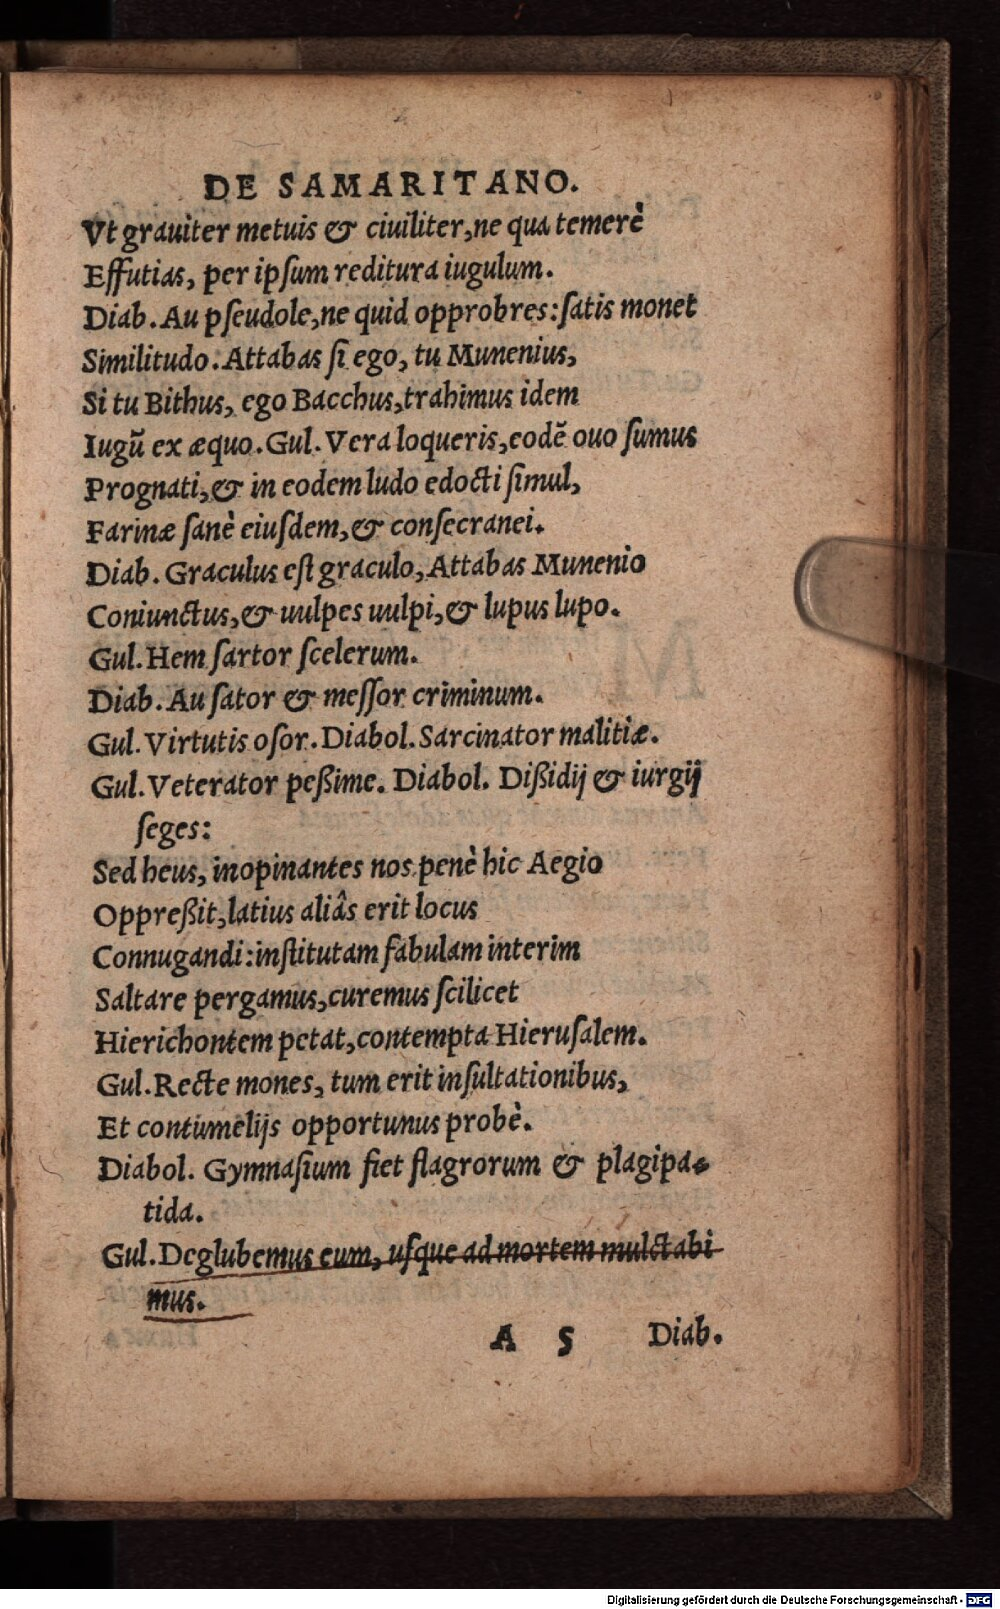 DE SAMARITANO.
Vt grauiter metuis & ciuiliter, ne qua temerè
Effutias, per ipſum reditura iugulum.
Diab. Au pſeudole, ne quid opprobres: ſatis monet
Similitudo. Attabas ſi ego, tu Munenius,
Si tu Bithus, ego Bacchus, trahimus idem
Iugū ex æquo. Gul. Vera loqueris, eodē ouo ſumus
Prognati, & in eodem ludo edocti ſimul,
Farinæ ſanè eiuſdem, & conſecranei.
Diab. Graculus eſt graculo, Attabas Munenio
Coniunctus, & uulpes uulpi, & lupus lupo.
Gul. Hem ſartor ſcelerum.
Diab. Au ſator & meſſor criminum.
Gul. Virtutis oſor. Diabol. Sarcinator malitiæ.
Gul. Veterator peßime. Diabol. Dißidij & iurgij
ſeges:
Sed heus, inopinantes nos penè hic Aegio
Oppreßit, latius aliâs erit locus
Connugandi: inſtitutam fabulam interim
Saltare pergamus, curemus ſcilicet
Hierichontem petat, contempta Hieruſalem.
Gul. Recte mones, tum erit inſultationibus,
Et contumelijs opportunus probè.
Diabol. Gymnaſium fiet flagrorum & plagipa-
tida.
Gul. Deglubemus eum, uſque ad mortem mulctabi
mus.
A 5 Diab.
Digitalisierung gefördert durch die Deutsche Forschungsgemeinschaft - DFG